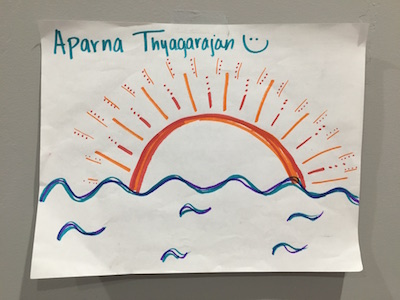 Aparna Thyagarajan